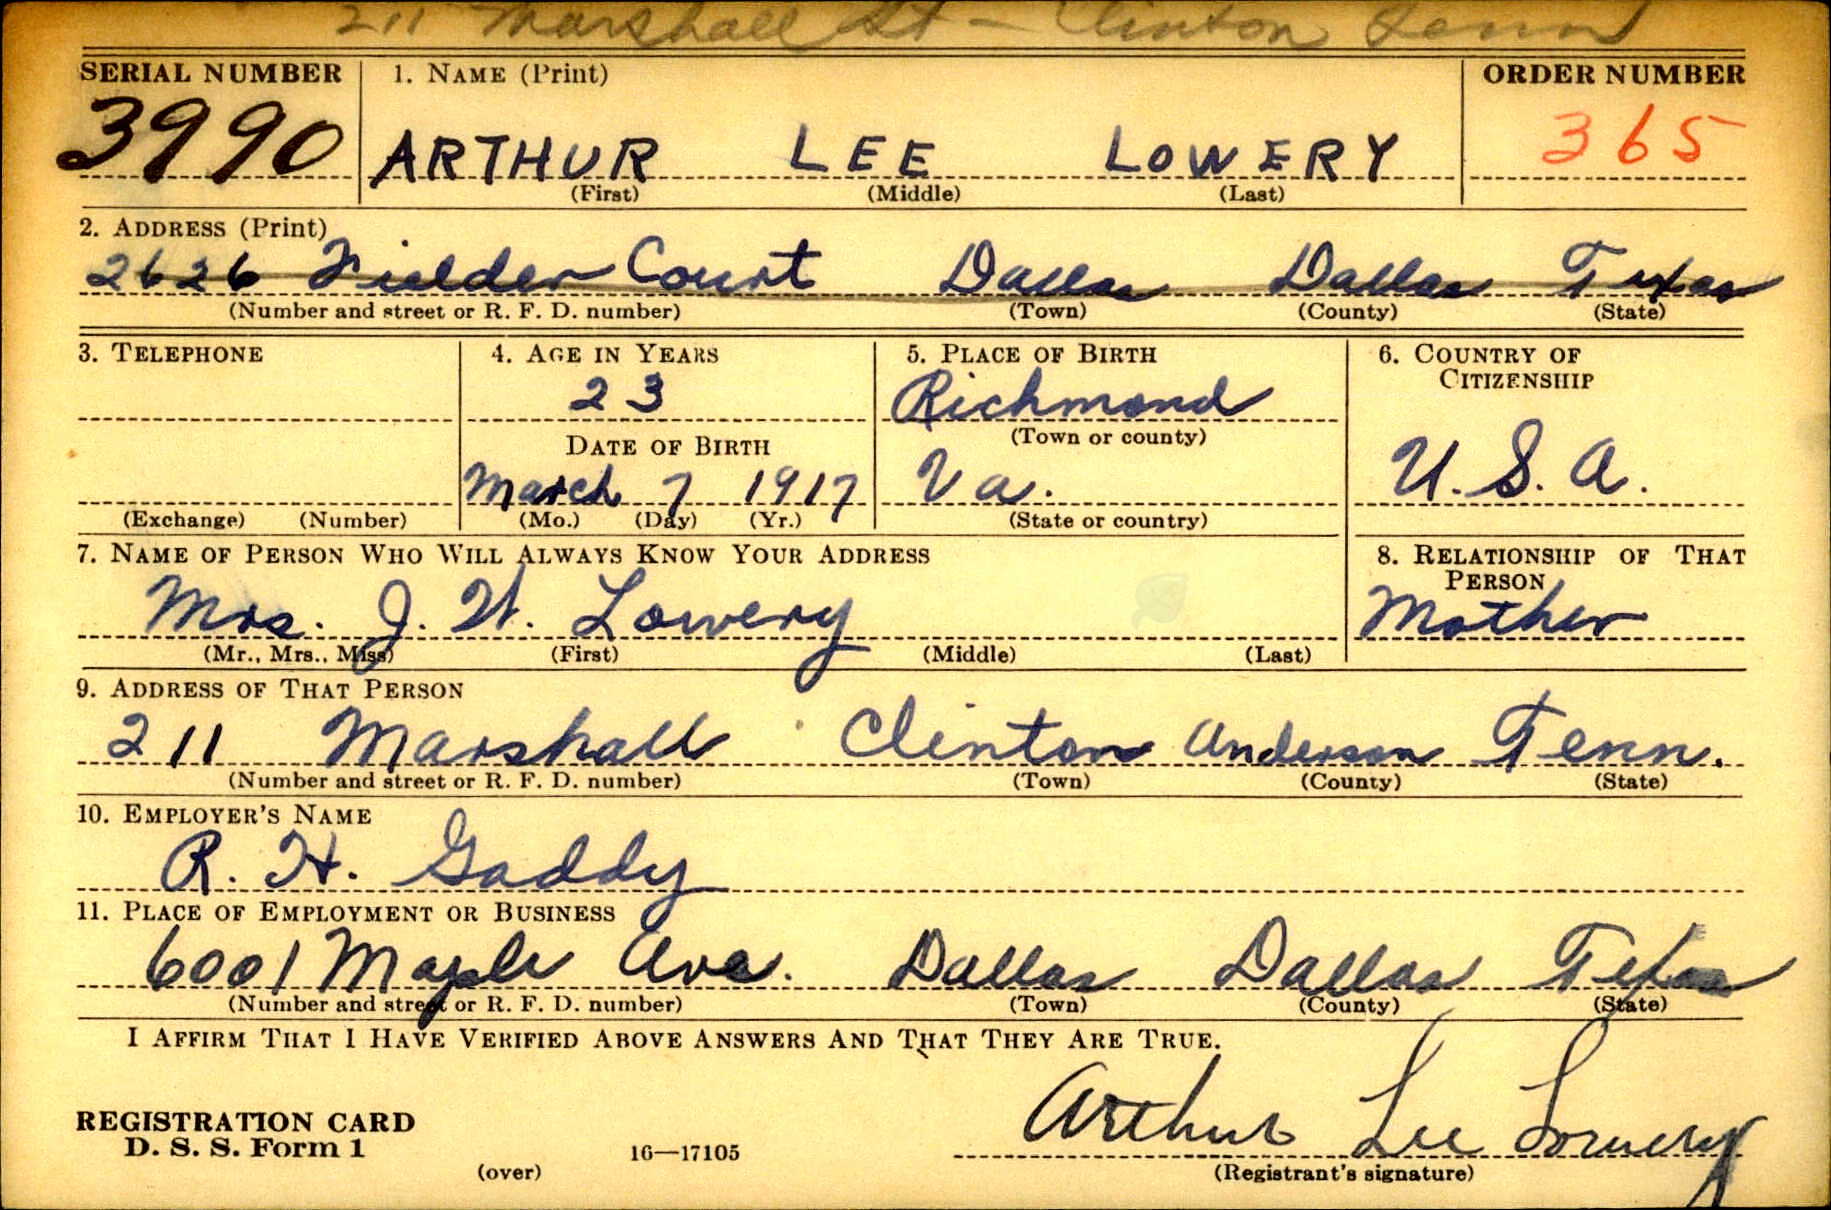 211 Marshall St - Clinton Tenn
SERIAL NUMBER 1. NAME (Print) ORDER NUMBER
3990 ARTHUR LEE LOWERY 365
(First) (Middle) (Last)
2. ADDRESS (Print)
2626 Fielder Court Dallas Dallas Texas
(Number and street or R. F. D. number) (Town) (County) (State)
3. TELEPHONE 4. AGE IN YEARS 5. PLACE OF BIRTH 6. COUNTRY OF CITIZENSHIP
23 Richmond
(Town or county)
DATE OF BIRTH
March 7 1917 Va. U. S. A.
(Exchange) (Number) (Mo.) (Day) (Yr.) (State or country)
7. NAME OF PERSON WHO WILL ALWAYS KNOW YOUR ADDRESS 8. RELATIONSHIP OF THAT PERSON
Mrs. J. W. Lowery Mother
(Mr., Mrs., Miss) (First) (Middle) (Last)
9. ADDRESS OF THAT PERSON
211 Marshall Clinton Anderson Tenn.
(Number and street or R. F. D. number) (Town) (County) (State)
10. EMPLOYER'S NAME
R. H. Gaddy
11. PLACE OF EMPLOYMENT OR BUSINESS
6001 Maple Ave. Dallas Dallas Texas
(Number and street or R. F. D. number) (Town) (County) (State)
I AFFIRM THAT I HAVE VERIFIED ABOVE ANSWERS AND THAT THEY ARE TRUE.
REGISTRATION CARD
D. S. S. Form 1 16—17105 Arthur Lee Lowery
(over) (Registrant's signature)